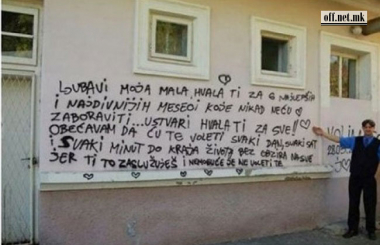 off.net.mk
LJUBAVI MOJA MALA, HVALA TI ZA 6 NAJLEPŠIH
I NAJDIVNIJIH MESECI KOJE NIKAD NEĆU
ZABORAVITI... USTVARI HVALA TI ZA SVE!!
OBEĆAVAM DA ĆU TE VOLETI SVAKI DAN, SVAKI SAT
I SVAKI MINUT DO KRAJA ŽIVOTA BEZ OBZIRA NA SVE
JER TI TO ZASLUŽUJEŠ I NEMOGUĆE JE NE VOLETI TE